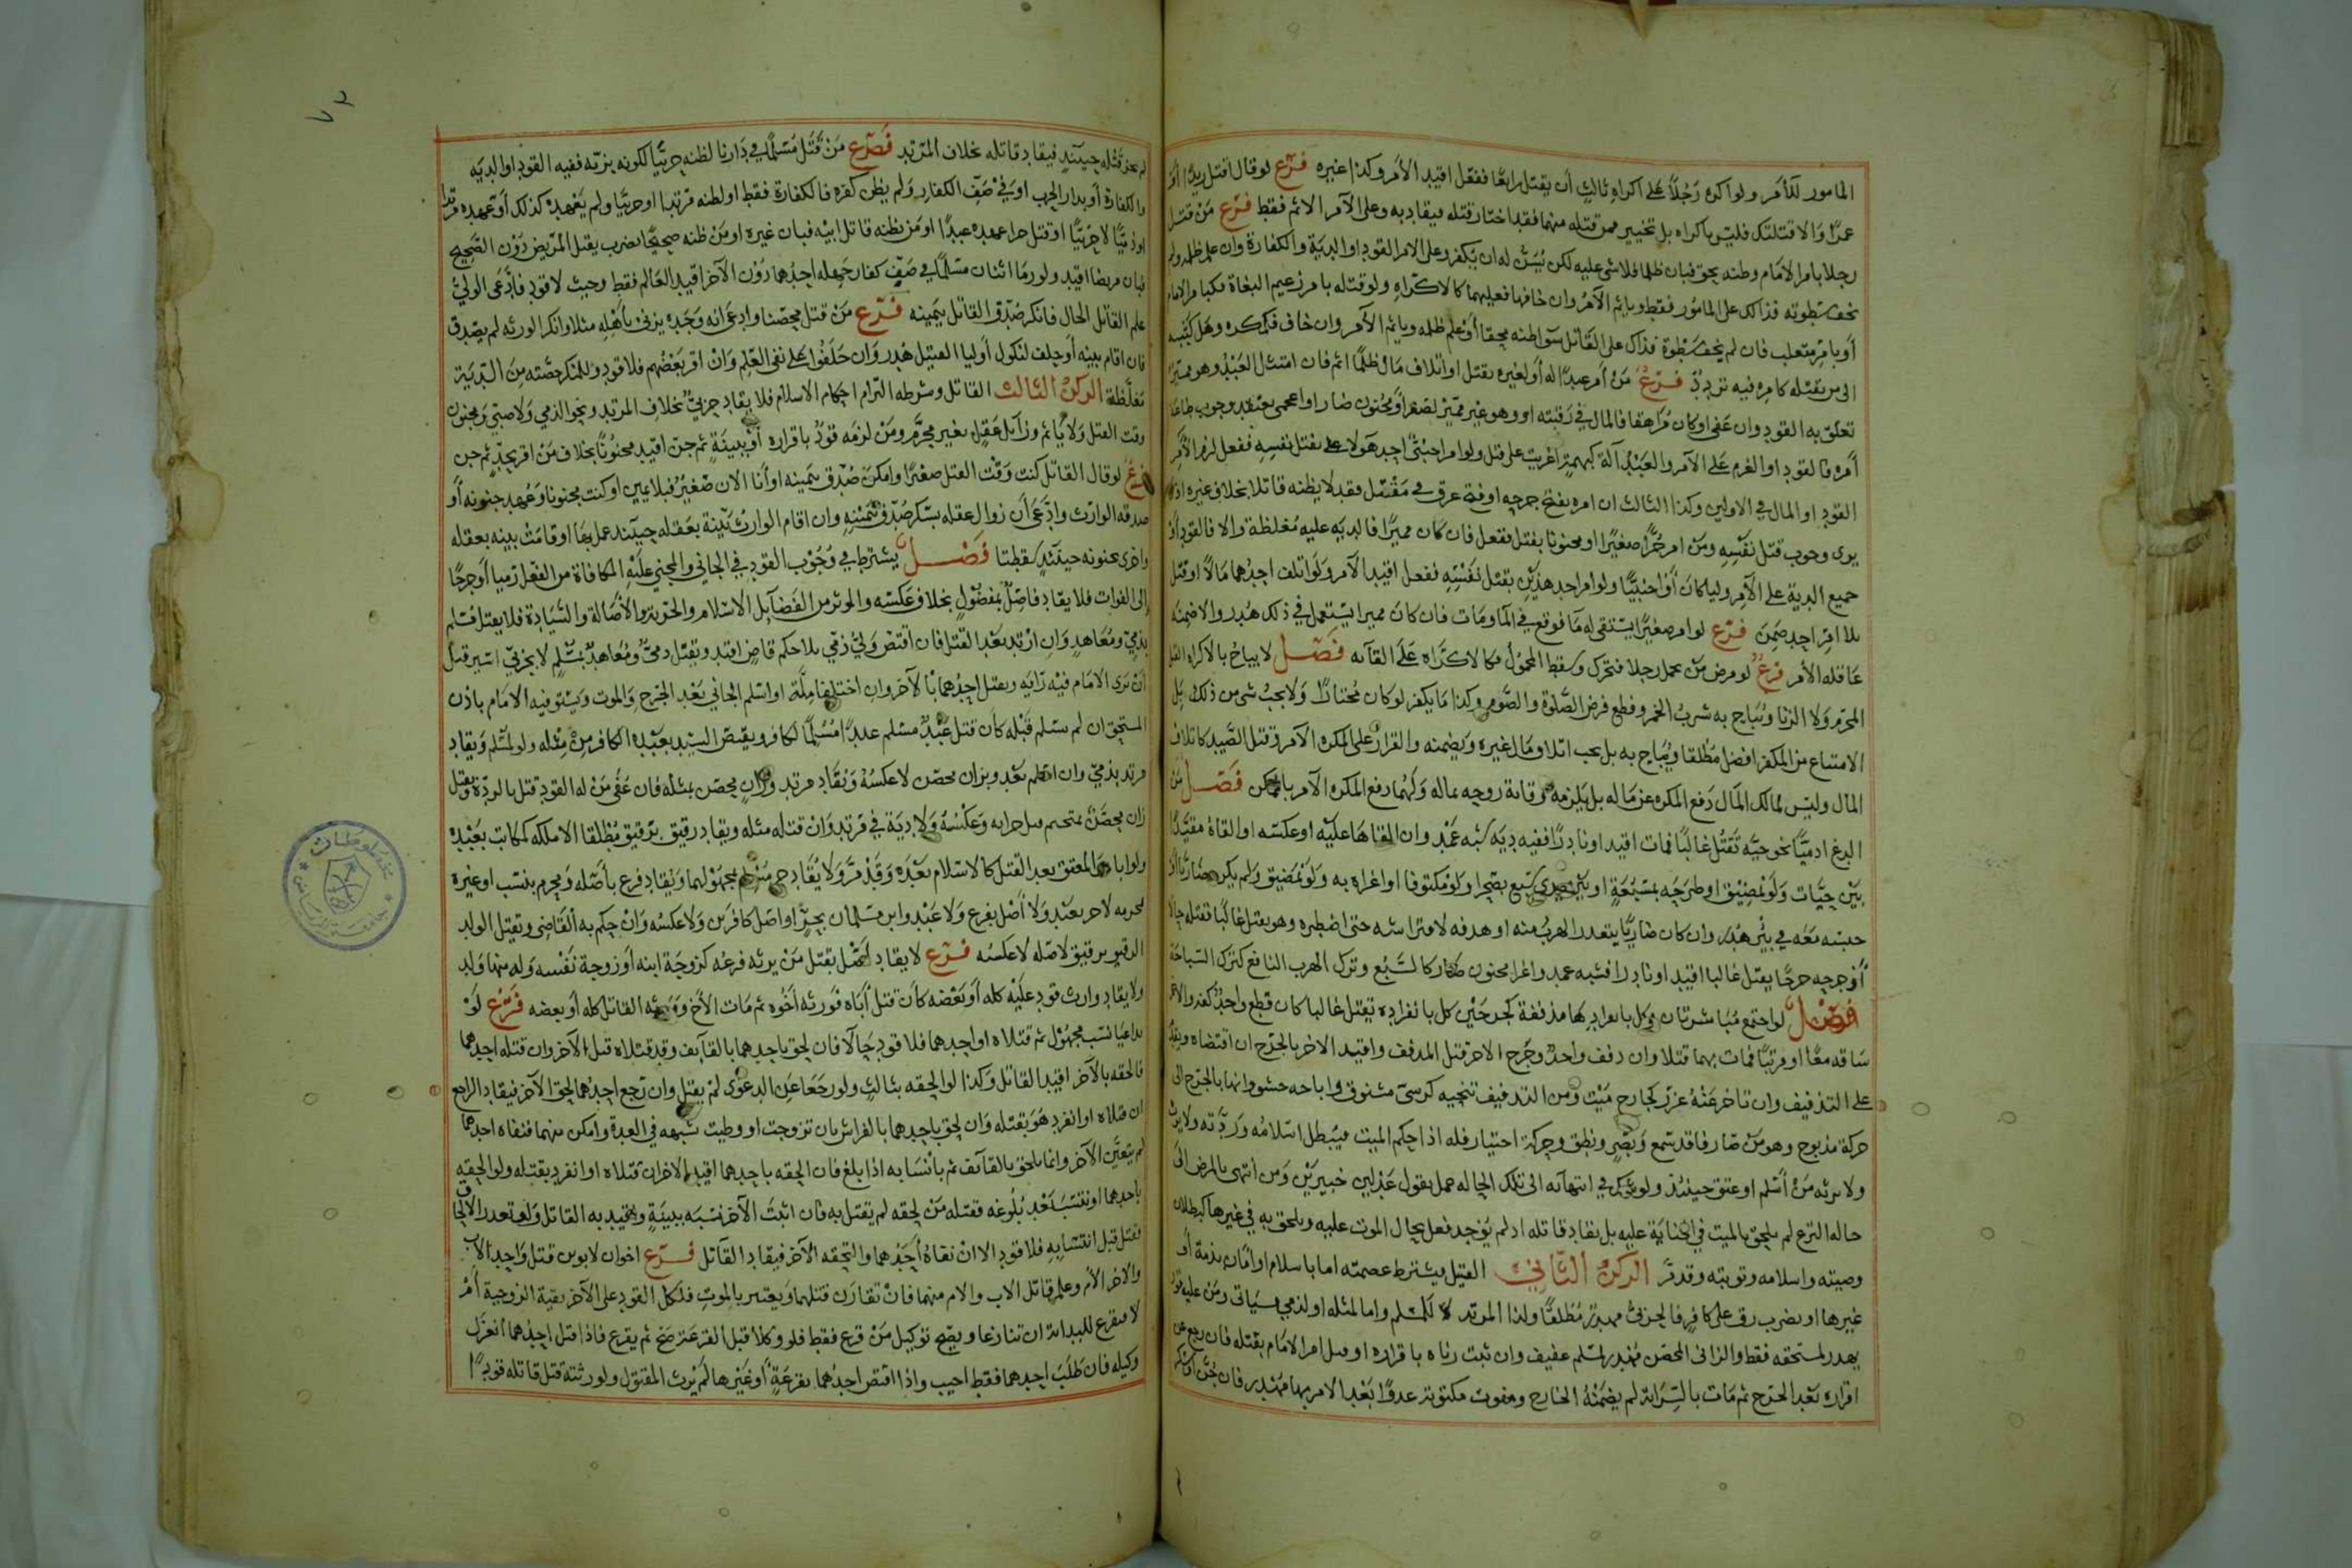 المامور للآمر ولو اكره رجلا على اكراه ثالث أن يقتل رابعا ففعل اقيد الآمر وكذا غيره فرع لو قال اقتل زيدا أو
عمرا والا قتلتك فليس باكراه بل تخيير فمن قتله منهما فقد اختار قتله فيقاد به وعلى الآمر الاثم فقط فرع من قتل
رجلا بامر الامام وظنه بحق فبان ظلما فلا شى عليه لكن يسن له ان يكفر وعلى الامر القود او الدية والكفارة وان علم ظلمه ولم
يخف سطوته فذاك على المامور فقط وياثم الآمر وان خافها فعليهما كالاكراه ولو قتله بامر زعيم البغاة فكبامر الامام
أو بامر متغلب فان لم يخف سطوة فذاك على القاتل سوا ظنه محقا أو علم ظلمه وياثم الآمر وان خاف فكمكره وهل
الى من يقتله كامره فيه تردد فرع من أمر عبدا له أو لغيره بقتل او اتلاف مال ظلما اثم فان امتثل العبد وهو مميز
تعلق به القود وان عفى او كان مراهقا فالمال في رقبته او وهو غير مميز لصغر أو جنون ضار او اعجمى يعتقد وجوب طاعة
أمره فالقود او الغرم على الآمر والعبد آلة كبهيمة اغريت على قتل ولو امر اجنبى احد هولا على بقتل نفسه ففعل لزم الآمر
القود او المال في الاولين وكذا الثالث ان امره بفتح جرحه او فتح عرق في مقتل فقد لا يظنه قاتلا بخلاف غيره اذ لا
يرى وجوب قتل نفسه ومن امر حرا صغيرا او مجنونا بقتل ففعل فان كان مميزا فالدية عليه مغلظة والا فالقود أو
جميع الدية على الآمر وليا كان أو اجنبيا ولو امر احد هذين بقتل نفسه ففعل اقيد الآمر ولو اتلف احدهما مالا او قتل
بلا امر احد ضمن فرع لو امر صغيرا يستقى له ما فوقع في الما ومات فان كان مميزا يستعمل في ذلك هدر والا ضمنه
عاقله الآمر فرع لو مرض من يحمل رجلا فتحرك وسقط المحمول فكالاكراه على القآئه فصل لا يباح بالاكراه القتل
المحرم ولا الزنا ويباح به شرب الخمر وقطع فرض الصلوة والصوم وكذا ما يكفر لو كان مختارا ولا يجب شى من ذلك بل
الامتناع من المكفر افضل مطلقا ويباح به بل يجب اتلاف مال غيره ويضمنه والقرار على المكره الآمر وقتل الصيد كاتلاف
المال وليس لمالك المال دفع المكره عن ماله بل يلزمه وقاية روحه بماله ولهما دفع المكره الآمر بالممكن فصل من
الدغ ادميا نحو حية تقتل غالبا فمات اقيد او نادرا ففيه دية شبه عمد وان القاها عليه او عكسه او القاه مقيدا
بين حيات ولو بمضيق او طرحه بمسبعة او بين يدى سبع بصحرا ولو مكتوفا او اغراه به ولو بمضيق ولم يكن ضاريا أو
حبسه معه في بيت هدر وان كان ضاريا يتعذر الهرب منه او هدفه لافتراسه حتى اضطره وهو يقتل غالبا فقتله حالا
أو جرحه جرحا يقتل غالبا اقيد او نادرا فشبه عمد واغرا مجنون ضار كالسبع وترك الهرب النافع كترك السباحة
فصل لو اجتمع مباشرتان وكل بانفرادها مذففة كجرحين كل بانفراده يقتل غالبا كان قطع واحد كفه والاخر
ساقه معا او مرتبا فمات بهما قتلا وان دفف واحد وجرح الاخر قتل المدفف واقيد الاخر بالجرح ان اقتضاه ويقدم
على التذفيف وان تاخر عنه عزر كجارح ميت ومن التدفيف تنحيه كرسى مشنوق واباحه حشوه وانها بالجرح الى
حركة مذبوح وهو من صار فاقد سمع وبصر ونطق وحركة اختيار فله اذا حكم الميت فيبطل اسلامه وردته ولا يرث
ولا يرثه من أسلم او عتق حينئذ ولو شك في انتهآئه الى تلك الحاله عمل بقول عدلين خبيرين ومن انتهى بالمرض الى
حاله النزع لم يلحق بالميت في الجناية عليه بل يقاد قاتله اذ لم يوجد فعل يحال الموت عليه ويلحق به في غيرها كبطلان
وصيته واسلامه وتوبته وقد مر الركن الثاني القتيل ويشترط عصمته اما باسلام او امان بذمة أو
غيرها او بضرب رق على كافر فالحربى مهدر مطلقا ولذا المرتد لا لمسلم واما لمثله او لذمي فسياتى ومن عليه قود
يهدر لمستحقه فقط والزانى المحصن مهدر لمسلم عفيف وان ثبت زناه باقراره او قبل امر الامام بقتله فان رجع عن
اقراره بعد الجرح ثم مات بالسراية لم يضمنه الجارح ومفوت مكتوبة عدوا بعد الامر بها مهدر فان جن أو سكر
لم يجز قتله حينئذ فيقاد قاتله بخلاف المرتد فصرع من قتل مسلما في دارنا لظنه حربيا لكونه بزيه ففيه القود او الدية
والكفارة أو بدار الحرب او في صف الكفار ولم يظن كفره فالكفارة فقط او لظنه مرتدا او حربيا ولم يعهده كذلك أو عهده مرتدا
او ذميا لا حربيا او قتل حرا عهده عبدا او من يظنه قاتل ابيه فبان غيره او من ظنه صحيحا بضرب يقتل المريض دون الصحيح
فبان مريضا اقيد ولو رما اثنان مسلما في صف كفار جهله احدهما دون الآخر اقيد العالم فقط وحيث لا قود فادعى الولي
علم القاتل الحال فانكر صدق القاتل بيمينه فرع من قتل محصنا وادعى انه وجده يزنى باهله مثلا وانكر الورثه لم يصدق
فان اقام بينه أو حلف لنكول أوليا القتيل هدر وان حلفوا على نفى العلم وان اقر بعضهم فلا قود وللمنكر حصته من الدية
مغلظة الركن الثالث القاتل وشرطه التزام احكام الاسلام فلا يقاد حربى بخلاف المرتد ونحو الذمي ولا صبى ومجنون
وقت القتل ولا ياثم وزآئل عقل بغير محرم ومن لزمه قود باقراره أو بينة ثم جن اقيد مجنونا بخلاف من اقر بحد ثم جن
فرع لو قال القاتل كنت وقت القتل صغيرا وامكن صدق بيمينه او أنا الان صغير فبلا يمين او كنت مجنونا وعهد جنونه أو
صدقه الوارث وادعى أن زوال عقله بسكر صدق بيمينه وان اقام الوارث بينة بعقله حينئذ عمل بها او قامت بينه بعقله
واخرى بجنونه حينئذ سقطتا فصل يشترط في وجوب القود في الجاني والمجني عليه المكافاة من الفعل رميا أو جرحا
إلى الفوات فلا يقاد فاضل بمفضول بخلاف عكسه والموثر من الفضآئل الاسلام والحرية والأصالة والسيادة فلا يقتل مسلم
بذمي ومعاهد وان ارتد بعد القتل فان اقتص ولي ذمي بلا حكم قاض اقتد ويقتل دمى ومعاهد بمسلم لا بحربي اسير قبل
أن يرى الامام فيه رايه ويقتل احدهما بالآخر وان اختلفا ملة او اسلم الجاني بعد الجرح والموت ويستوفيه الامام باذن
المستحق ان لم يسلم قبله كأن قتل عبد مسلم عبدا مسلما لكافر ويقتص السيد بعبده الكافر من مثله ولو لمسلم ويقاد
مرتد بذمي وان اسلم بعد وبزان محصن لا عكسه ويقاد مرتد وزان محصن بمثله فان عفى من له القود قتل بالردة ويقتل
زان محصن بمتحتم قبل حرابه وعكسه ولا دية في مرتد وان قتله مثله ويقاد رقيق برقيق مطلقا الا ملكه كمكاتب بعبده
ولو اباه والمعتق بعد القتل كالاسلام بعده وقد مر ولا يقاد حر مسلم بمجهولهما ويقاد فرع بأصله ومحرم بنسب او غيره
بمحرمه لا حر بعبد ولا أصل بفرع ولا عبد وابن مسلمان بحر او اصل كافرين ولا عكسه وان حكم به القاضى ويقتل الولد
الرقيق برقيق لاصله لا عكسه فرع لا يقاد أصل بقتل من يرثه فرعه كزوجة ابنه أو زوجة نفسه وله منها ولد
ولا يقاد وارث قود عليه كله أو بعضه كأن قتل أباه فورثه أخوه ثم مات الأخ وورثه القاتل كله أو بعضه فرع لو
تداعيا نسب مجهول ثم قتلاه او احدهما فلا قود حالا فان لحق باحدهما بالقآئف وقد قتلاه قبل الآخر وان قتله احدهما
فالحقه بالآخر اقيد القاتل وكذا لو الحقه بثالث ولو رجعا عن الدعوى لم يقبل وان رجع احدهما لحق الآخر فيقاد الراجع
ان قتلاه او انفرد هو بقتله وان لحق باحدهما بالفراش بان تزوجت او وطيت بشبهه في العدة وامكن منهما فنفاه احدهما
لم يتعين الآخر وانما يلحق بالقآئف ثم بانتسابه اذا بلغ فان الحقه باحدهما اقيد الاخر ان قتلاه او انفرد بقتله ولو الحقه
باحدهما او انتسب بعد بلوغه فقتله من لحقه لم يقتل به فان اثبت الآخر نسبه ببينة واقيد به القاتل ولو تعذر الالحاق
فقتل قبل انتسابه فلا قود الا ان نفاه أحدهما والتحقه الآخر فيقاد القآتل فرع اخوان لابوين قتل واحد الأب
والاخر الام وعلم قاتل الاب والام منهما فان تقارن قتلهما ويعتبر بالموت فلكل القود على الآخر بقية الزوجية أم
لا فيقرع للبداءة ان تنازعا ويصح توكيل من قرع فقط فلو وكلا قبل القرعة صح ثم يقرع فاذا قتل احدهما انعزل
وكيله فان طلب احدهما فقط اجيب واذا اقتص احدهما بقرعة أو غيرها لم يرث المقتول ولورثته قتل قاتله قودا
٧٣